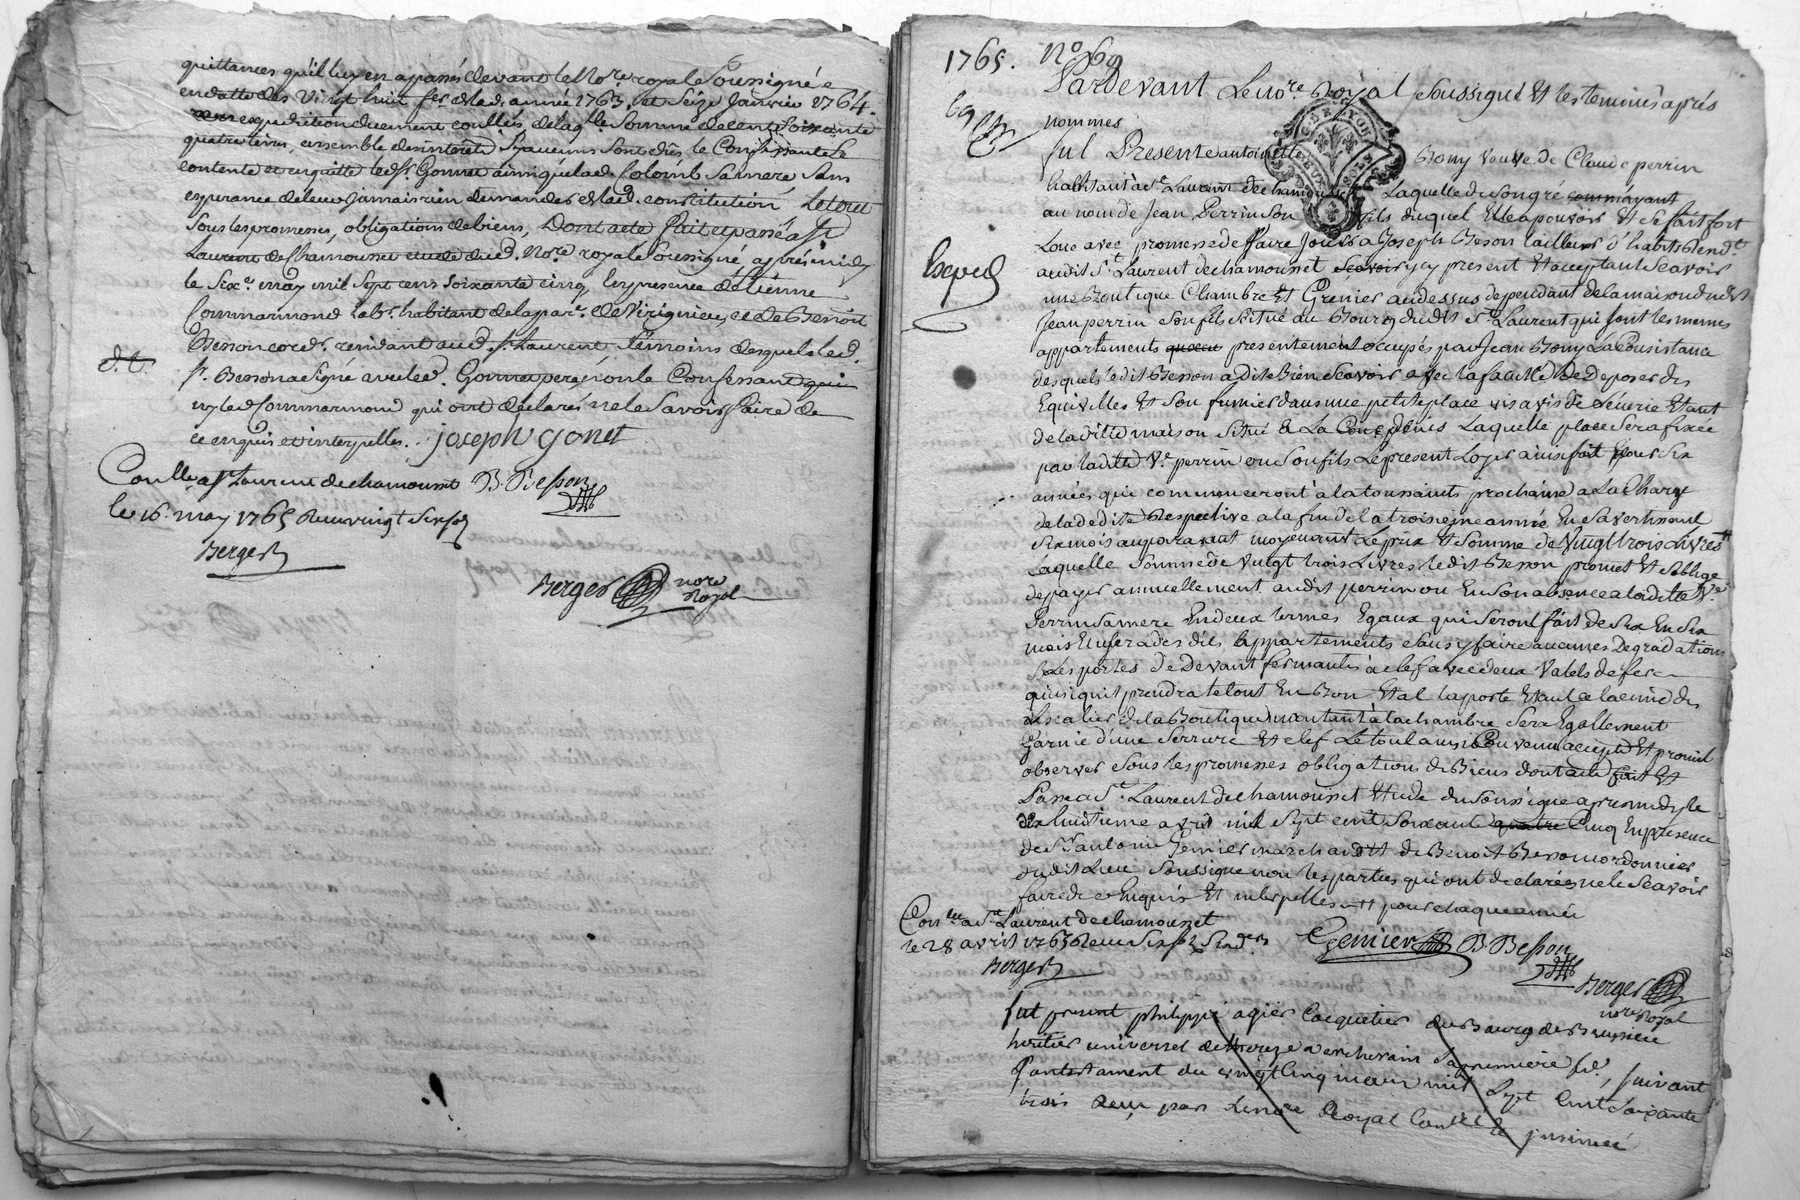 quittances qu'il luy en a passés devant le No.re royal Soussigné e
en datte des Vingt huit fer. de lad. année 1763. et Seize Janvier 1764.
expedition duement coullés de laq.lle Somme de cent Soixante
quatre livres, ensemble des interets Sy aucuns Sont dûs, le Confessant Se
contente et en quitte led. Sr. Gonnet ainsi que lad. Colomb Sa mere Sans
esperance de leur jamais rien demander de lad. constitution Le tout
Sous les promesses, obligations de biens, Dont acte fait et passé a St
Laurent de Chamousset etude dud. No.re royal Soussigné après midy
le Six.e may mil Sept cens Soixante cinq, En presence d'Etienne
Commarmond lab.r habitant de la par.e de Virignieu, et de Benoit
Besson cord.r residant aud. St. Laurent temoins desquels led.
d. t.
Sr. Besson a Signé avec led. Gonnet pere, non le Confessant qui
ny led Commarmond qui ont déclarés ne le Savoir faire de
ce enquis et interpellés. joseph gonet
Conllé a St Laurent de chamousset B. Besson
le 16. may 1765 Reçu vingt Six sols
Berger
Berger nore
Royal
1765. No. 69
Pardevant Le no.re Royal Soussigné Et les temoins après
nommés
fut Presente antoinette Bony veuve de Claude perrin
habitant à St. Laurent de chamousset Laquelle de Son gré comme ayant
au nom de Jean Perrin Son fils duquel Elle a pouvoir Et Se fait fort
Loue avec promesse de ffaire Jouir a Joseph Beson tailleur d'habits Demd.t
Exped
audit St Laurent de chamousset Scavoir icy present Et acceptant Scavoir
une Boutique Chambre Et Grenier au dessus dependant de la maison dudit
Jean perrin Son fils Situé au Bourg dudit St Laurent qui font les memes
appartements presentement occupés par Jean Bony La Consistance
desquels ledit Besson a dit Bien Scavoir avec la faculté de Deposer des
Equivilles Et Son fumier dans une petite place vis a vis de L'écurie Etant
de la ditte maison Situé à La Cour depuis Laquelle place Sera fixée
par la ditte Ve. perrin ou Son fils Le present Loyer ainsi fait pour Six
années qui commenceront à la toussaints prochaine a La Charge
de la dedite Respective a la fin de la troisieme année En S'avertissant
Six mois auparavant moyennant Le prix Et Somme de Vingt trois Livres
Laquelle Somme de Vingt trois Livres ledit Besson promet Et S'oblige
de payer annuellement audit perrin ou En Son absence a laditte Ve.
Perrin Sa mere En deux termes Egaux qui Seront fait de Six En Six
mois Usera des dits Appartements Sans y faire aucunes Degradations
Les portes de Devant fermantes à clef avec deux Valets de fer
qu'insi qu'il prendra le tout En Bon Etat la porte Etant a la cime des
Escalier de la Boutique montant à la chambre Sera Egallement
Garnie d'une Serrure Et clef Le tout ainsi Convenu accepté Et promit
observer Sous les promesses obligations de Biens dont acte fait Et
Passé a St. Laurent de chamousset Etude du Soussigné apres midy le
dix huitieme avril mil Sept cent Soixante quatre Cinq En presence
de Sr. antoine Genier marchand Et de Benoit Besson cordonnier
dudit Lieu Soussigné non les parties qui ont declarées ne le Scavoir
faire de ce Enquis Et interpelles pour chaque année
Conllé a St Laurent de chamousset
le 28 avril 1765 Reçu Six sols
Berger
Genier B. Besson
Berger
nore Royal
fut present philippe agier Coquetier du Bourg de Brussieu
heritier universel de Sa premiere fe., Suivant
Son testament du vingt Cinq may mil Sept Cent Soixante
trois Reçu par Le no.re Royal Conllé le